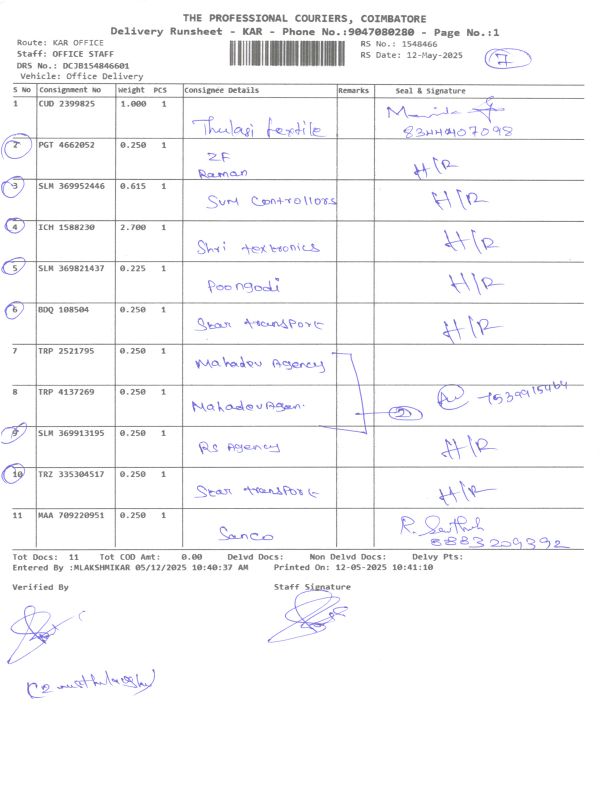 THE PROFESSIONAL COURIERS, COIMBATORE
Delivery Runsheet - KAR - Phone No.:9047080280 - Page No.:1
Route: KAR OFFICE RS No.: 1548466 7
Staff: OFFICE STAFF RS Date: 12-May-2025
DRS No.: DCJB154846601
Vehicle: Office Delivery
S No Consignment No Weight PCS Consignee Details Remarks Seal & Signature
1 CUD 2399825 1.000 1
Thulasi textile 8344407098
2 PGT 4662052 0.250 1 ZF
Raman H/R
3 SLM 369952446 0.615 1 Sum Controllors H/R
4 ICH 1588230 2.700 1 Shri textronics H/R
5 SLM 369821437 0.225 1 Poongodi H/R
6 BDQ 108504 0.250 1 Star transport H/R
7 TRP 2521795 0.250 1 Mahadev Agency
8 TRP 4137269 0.250 1 Mahadev Agen. 2
9 SLM 369913195 0.250 1 RS Agency H/R
10 TRZ 335304517 0.250 1 Star transport H/R
11 MAA 709220951 0.250 1 Sanco 8883209392
Tot Docs: 11 Tot COD Amt: 0.00 Delvd Docs: Non Delvd Docs: Delvy Pts:
Entered By :MLAKSHMIKAR 05/12/2025 10:40:37 AM Printed On: 12-05-2025 10:41:10
Verified By Staff Signature